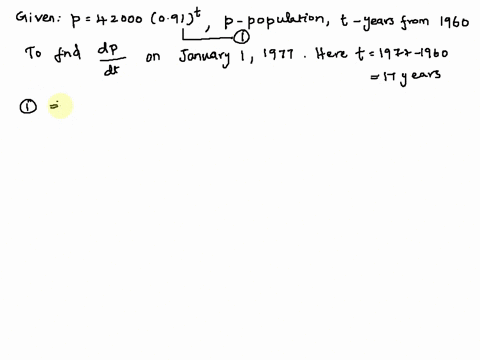 Given: p = 42000 (0.91)^t, p-population, t-years from 1960
①
To fnd dp/dt on January 1, 1977. Here t = 1977-1960
= 17 years
① =